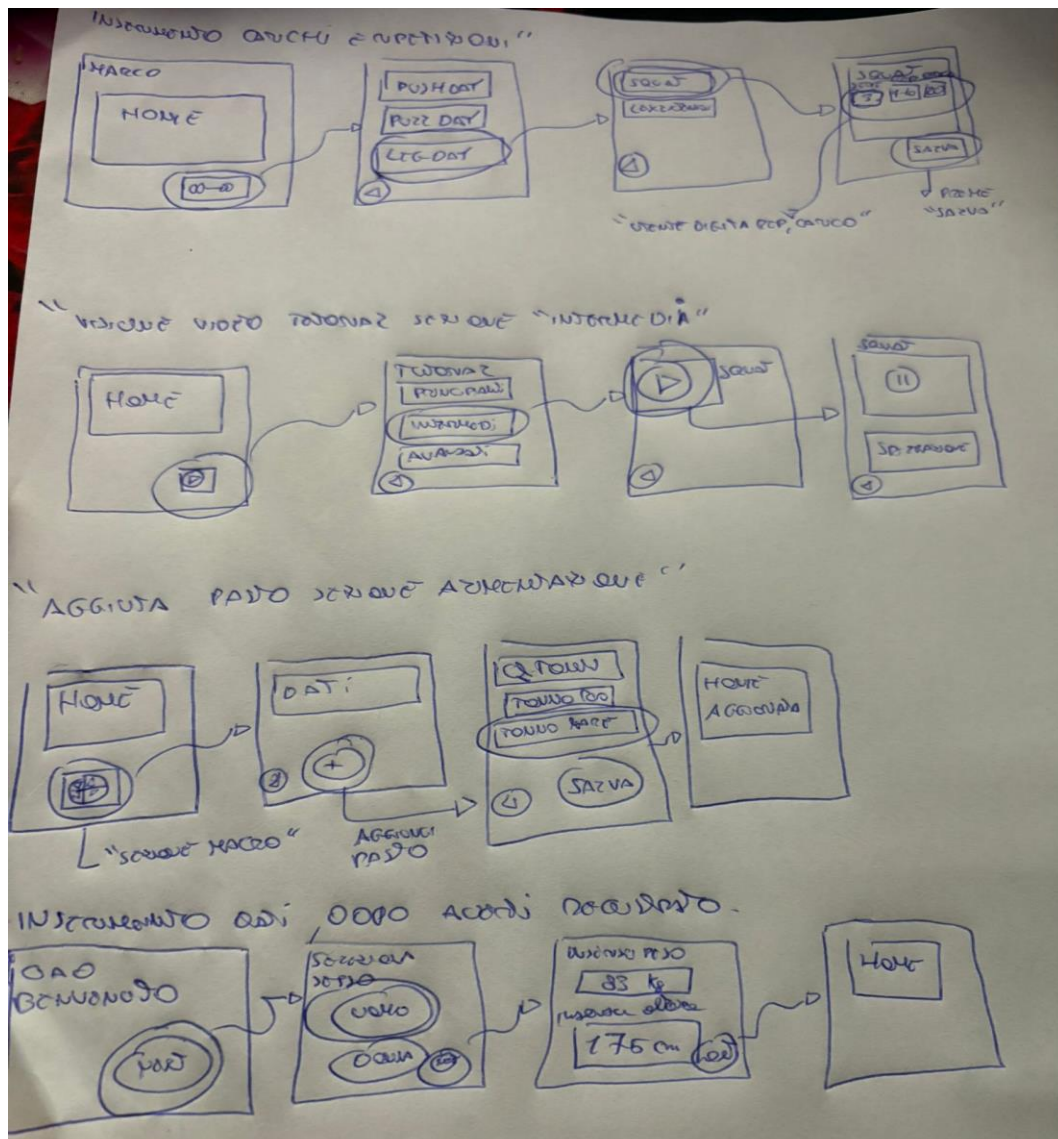 INSERIMENTO CARICHI E RIPETIZIONI"
MARCO
HOME
PUSH DAY
PULL DAY
LEG DAY
SQUAT
SQUAT
SALVA
PREME
"SALVA"
"UTENTE DIGITA REP, CARICO"
"VISIONE VIDEO TUTORIAL SEZIONE "INTERMEDIA"
HOME
TUTORIAL
INTERMEDI
AVANZATI
SQUAT
SQUAT
SPIEGAZIONE
"AGGIUNTA PASTO SEZIONE ALIMENTAZIONE"
HOME
"SEZIONE MACRO"
DATI
AGGIUNGI
PASTO
TONNO
TONNO MARE
SALVA
HOME
AGGIORNATA
INSERIMENTO DATI, DOPO ACCESSI REGISTRATO.
CIAO
BENVENUTO
NEXT
SELEZIONA
SESSO
UOMO
DONNA
INSERISCI PESO
83 Kg
inserisci altezza
175 cm
HOME